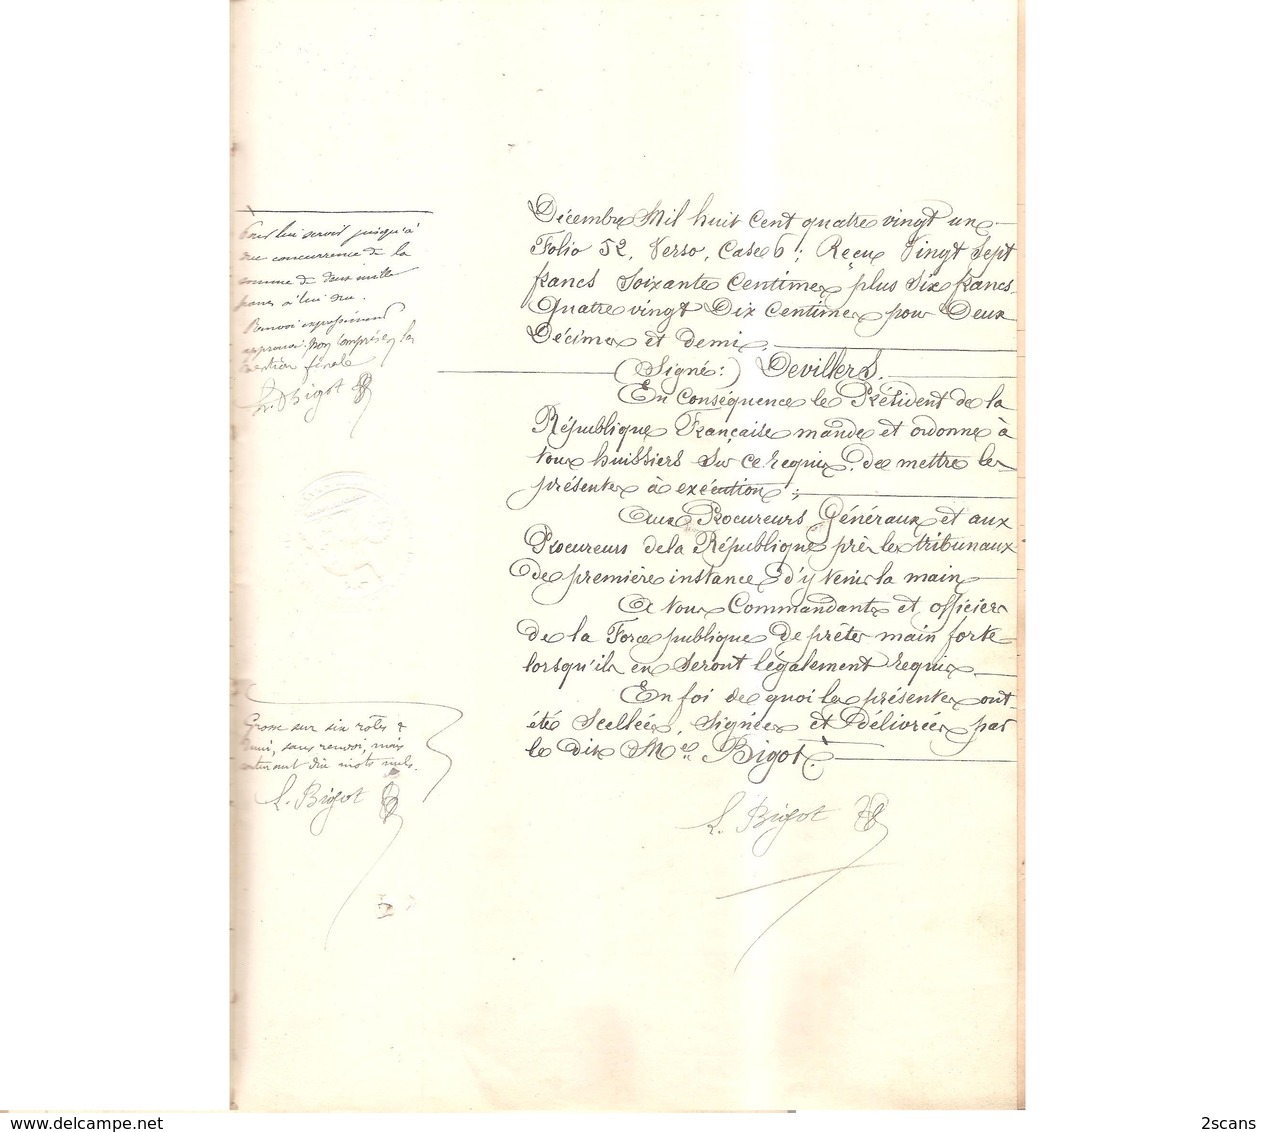 Décembre Mil huit Cent quatre vingt un
Folio 52, Verso, Case 6; Reçu Vingt Sept
francs Soixante Centimes, plus Six francs
Quatre vingt Dix Centimes pour Deux
Décimes et demi.
(Signé:) Devillers.
En Conséquence le Président de la
République Française mande et ordonne à
tous huissiers Sur ce requis, de mettre les
présentes à exécution;
Aux Procureurs Généraux et aux
Procureurs de la République près les tribunaux
de première instance d'y tenir la main
A tous Commandants et officiers
de la Force publique de prêter main forte
lorsqu'ils en Seront légalement requis.
En foi de quoi les présentes ont
été Scellées, Signées et Délivrées par
le dit Me Bigot.
L. Bigot
pour lui servir jusqu'à
due concurrence de la
somme de deux mille
francs à lui due.
Renvoi expressément
approuvé. non compris la
mention finale
L. Bigot
Grosse sur six rôles &
demi, sans renvoi, mais
contenant dix mots nuls.
L. Bigot
www.delcampe.net
2scans